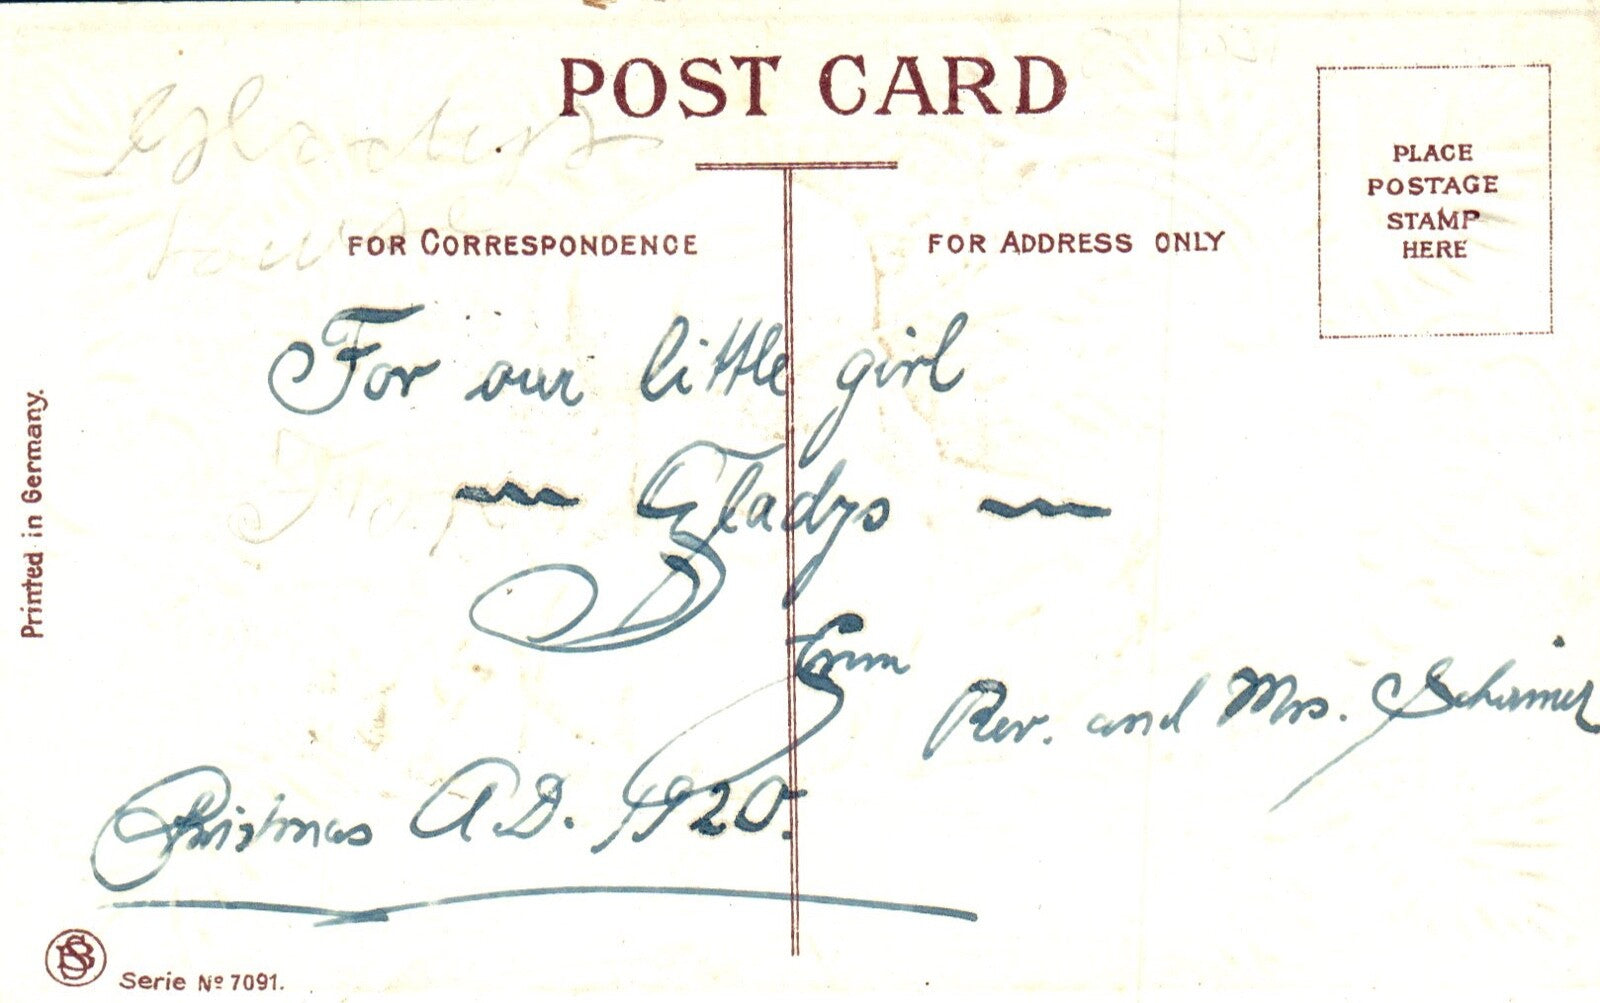 POST CARD
FOR CORRESPONDENCE
FOR ADDRESS ONLY
PLACE
POSTAGE
STAMP
HERE
For our little girl
~ Gladys ~
From
Rev. and Mrs.
Christmas A.D. 1920.
Printed in Germany.
Serie Nº 7091.